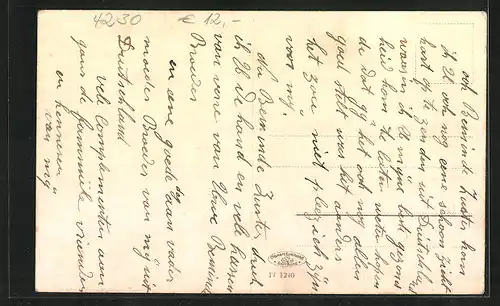 4230 € 12,-
och Beminde Zuster kom
ik U ook nog eene schoon Zicht
kaart op te zenden uit Duitschla
waarin ik U mijne beste gezond
heid kom te laten weten hopen
de dat gij het ook nog allen
goed stelt was het anders
het zoude niet plezierig zijn
voor mij.
du Beminde Zuster druk
ik U de hand en vele kussen
van verre van Uwe Beminde
Broeder
en eene goede dag aan vader
moeder Broeder van mij uit
Duitschland
vele Complementen aan
gans de fammielie vrienden
en kennissen
van mij
17 1240